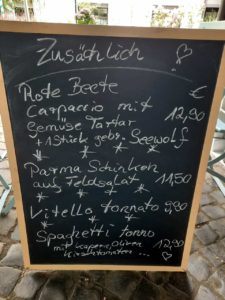 Zusätzlich
Rote Beete €
Carpaccio mit
Gemüse Tartar 12,90
+ 1 Stück gebr. Seewolf
* * * *
Parma Schinken
auf Feldsalat 11,50
* * *
Vitello tonnato 9,90
* *
Spaghetti tonno
mit Kapern, Oliven 12,90
Kirschtomaten ...